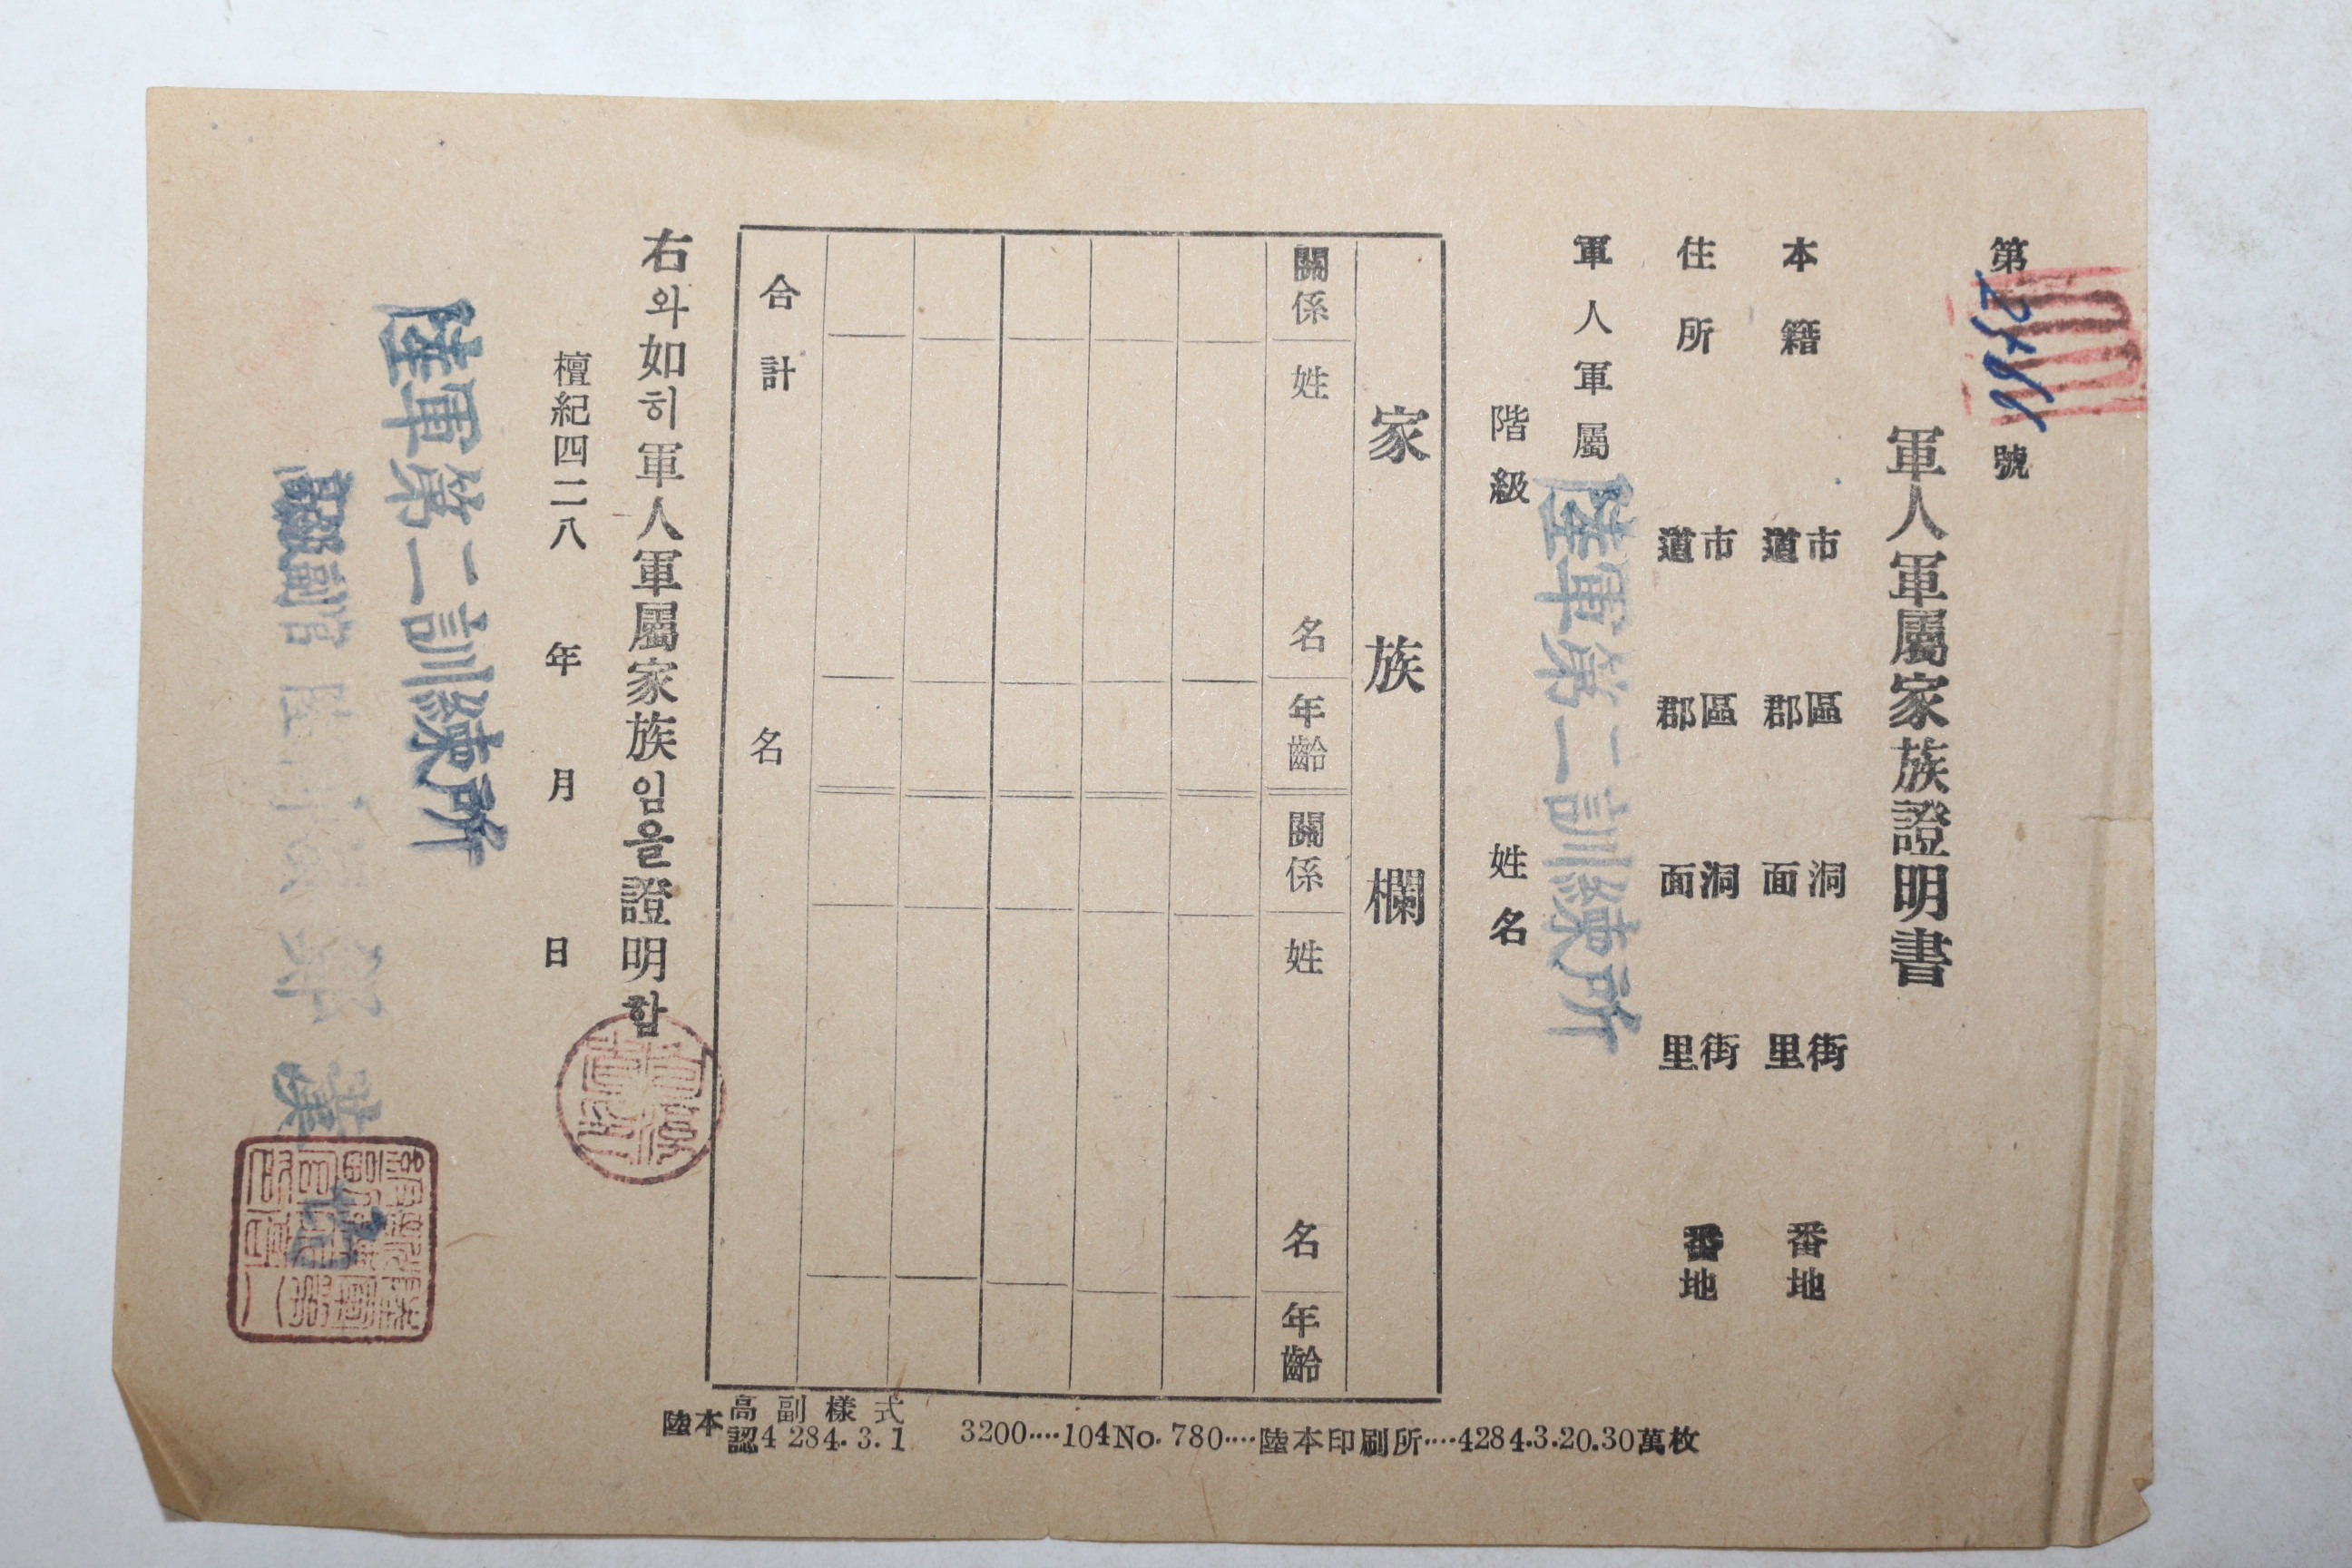 第 號
軍人軍屬家族證明書
本籍 市道 區郡 洞面 街里 番地
住所 市道 區郡 洞面 街里 番地
軍人軍屬 陸軍第二訓練所
階級 姓名
家族欄
關係 姓名 年齡 關係 姓名 年齡
合計 名
右와如히軍人軍屬家族임을證明함
檀紀四二八 年 月 日
陸軍第二訓練所
副官
陸本高副樣式認4284.3.1 3200....104No.780....陸本印刷所....4284.3.20.30萬枚